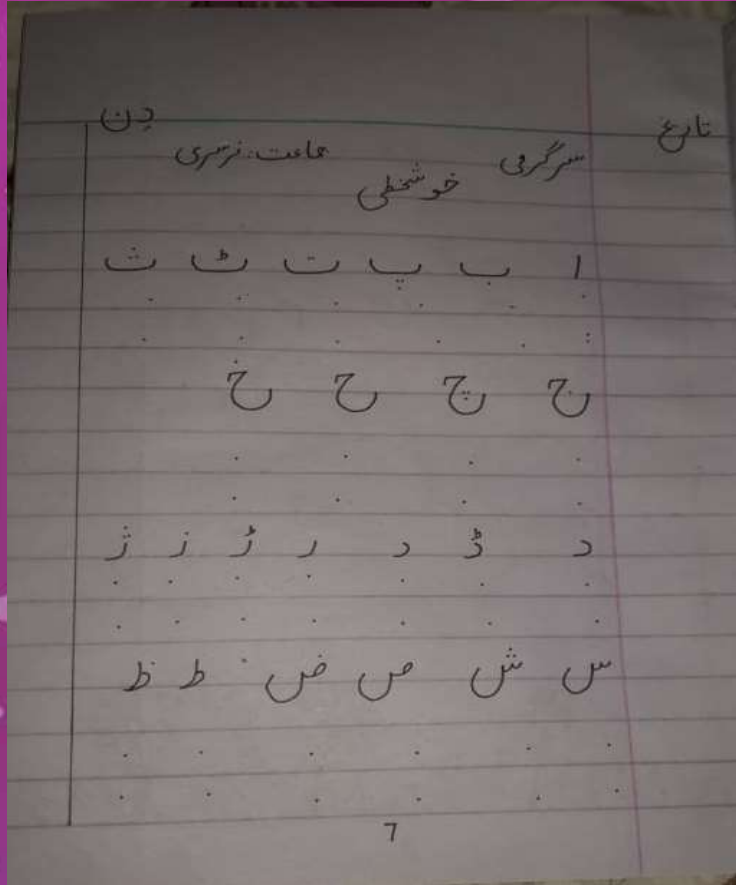 تاریخ دِن
سرگرمی جماعت: نرسری
خوشخطی
ا ب پ ت ٹ ث
ج چ ح خ
د ڈ د ر ڑ ز ژ
س ش ص ض ط ظ
7